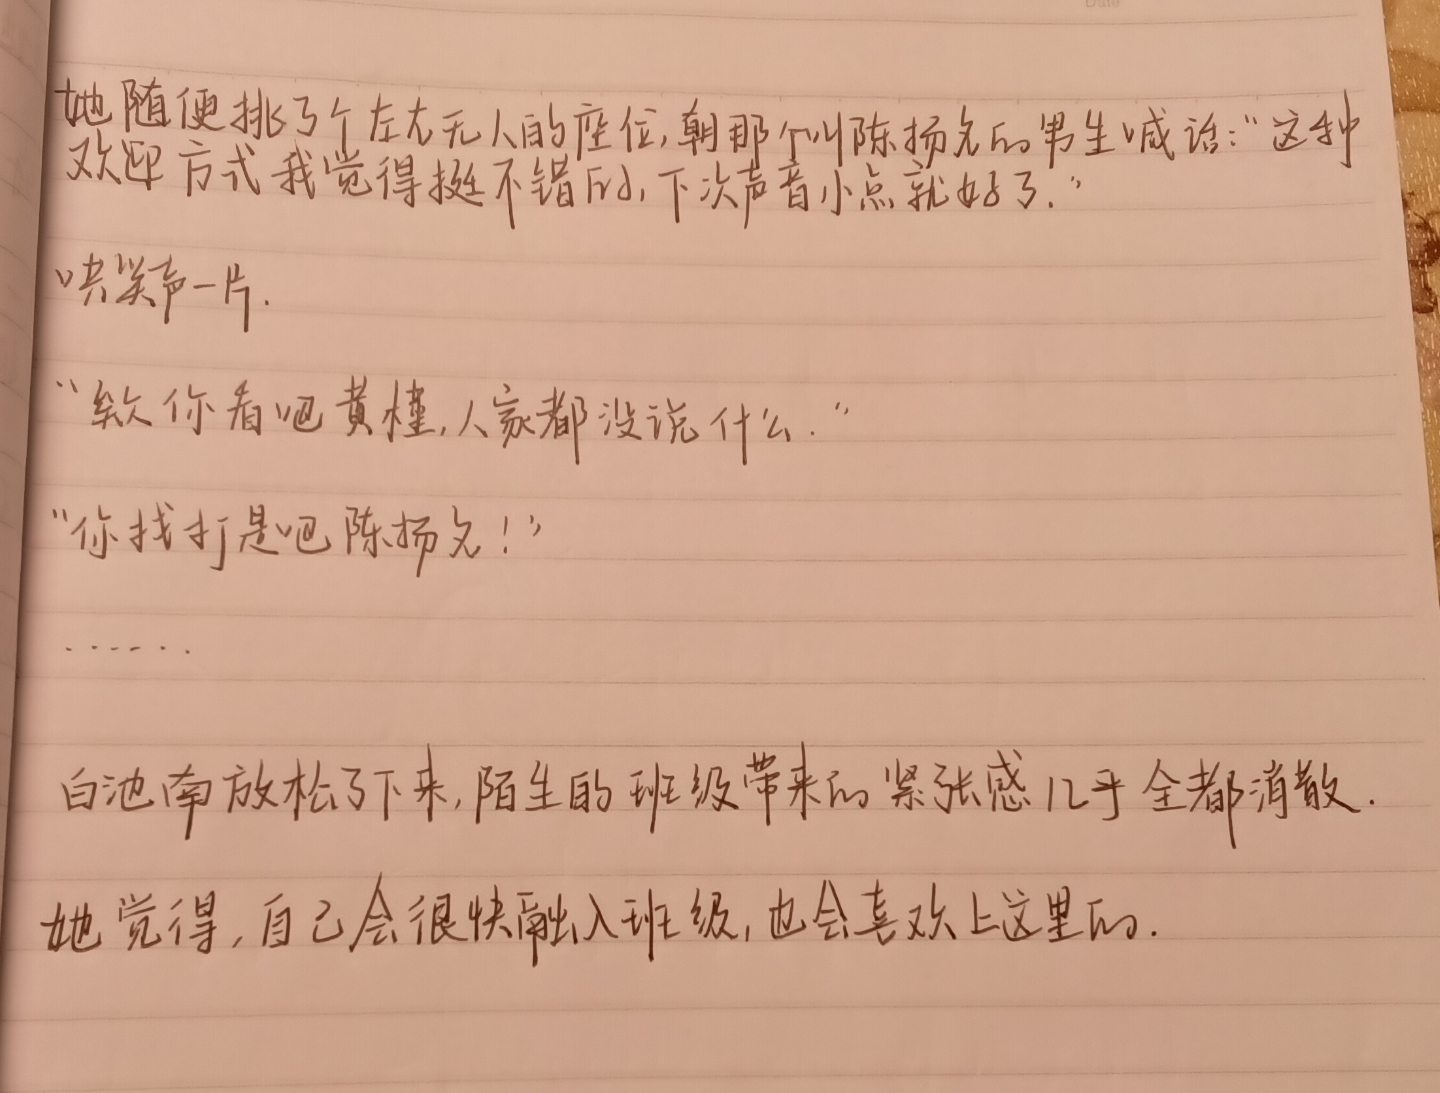 她随便挑了个左右无人的座位,朝那个叫陈扬的男生喊话:"这种
欢迎方式我觉得挺不错的,下次声音小点就好了."
哄笑声一片.
"欸你看吧黄槿,人家都没说什么."
"你找打是吧陈扬!"
......
白池南放松了下来,陌生的班级带来的紧张感几乎全都消散.
她觉得,自己会很快融入班级,也会喜欢上这里的.